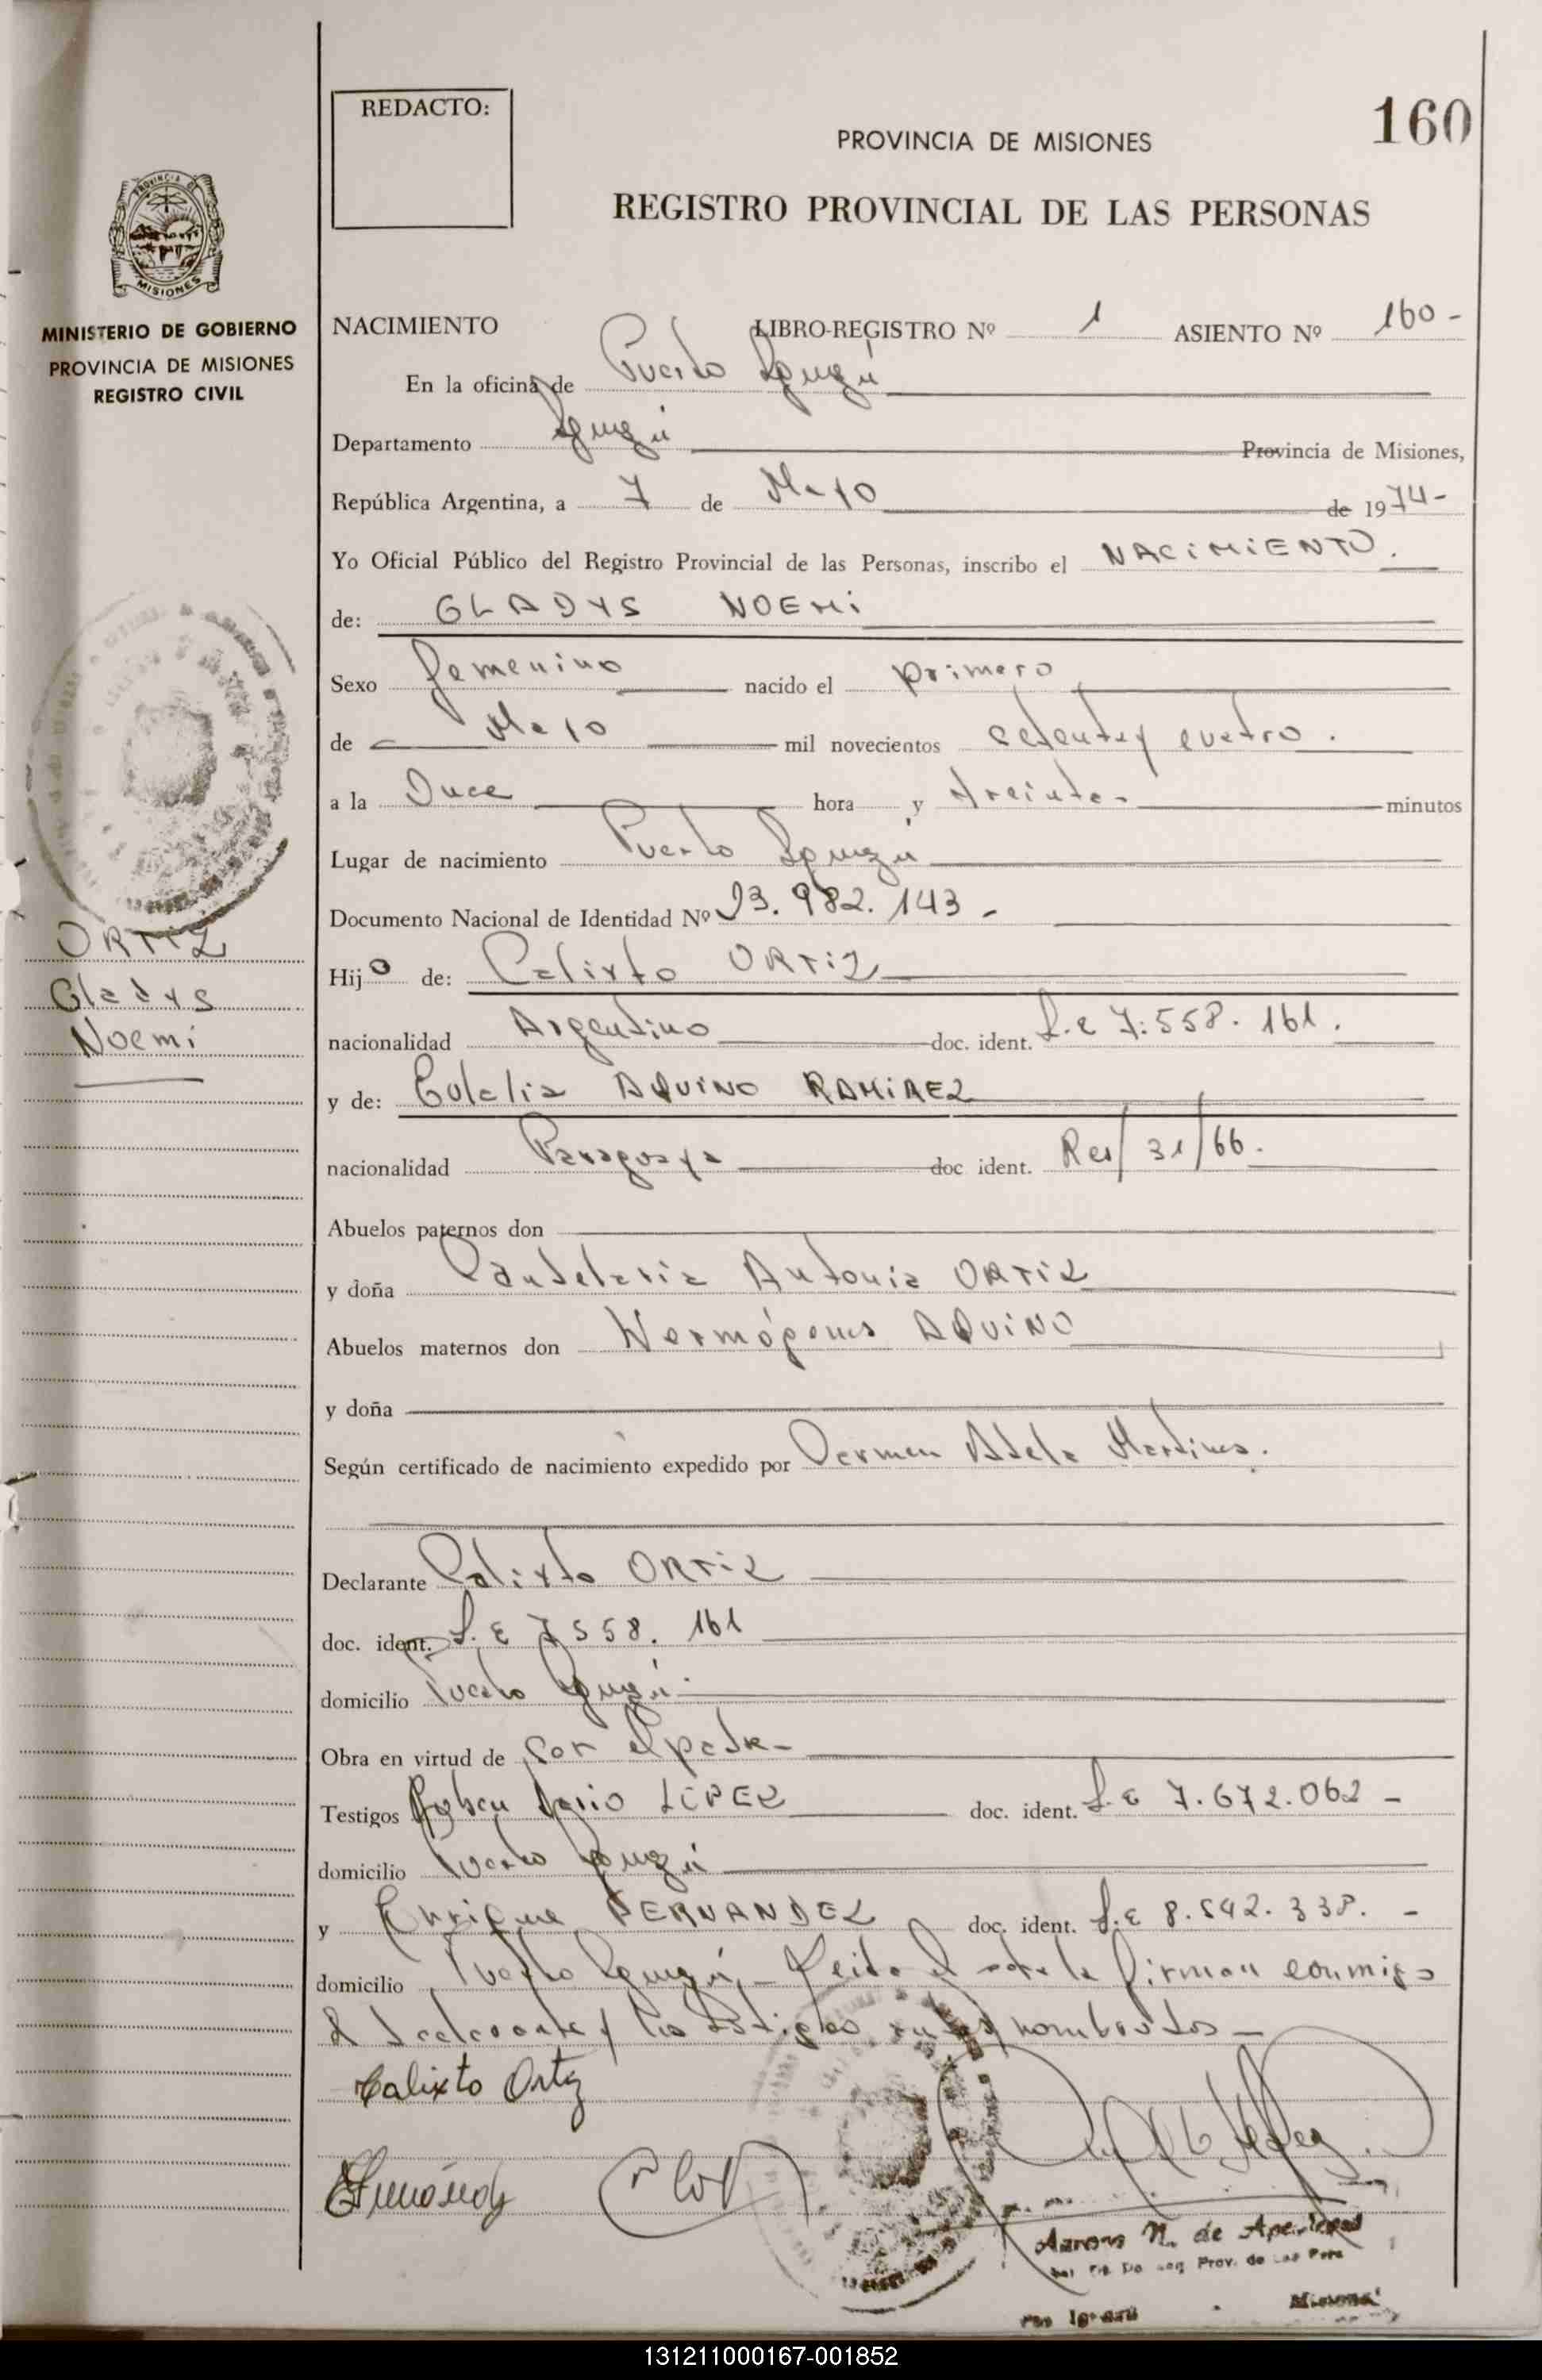 REDACTO:
160
PROVINCIA DE MISIONES
REGISTRO PROVINCIAL DE LAS PERSONAS
PROVINCIA DE
MISIONES
MINISTERIO DE GOBIERNO
PROVINCIA DE MISIONES
REGISTRO CIVIL
NACIMIENTO LIBRO-REGISTRO Nº 1 ASIENTO Nº 160-
En la oficina de Puerto Iguazú
Departamento Iguazú Provincia de Misiones,
República Argentina, a 7 de Mayo de 1974-
Yo Oficial Público del Registro Provincial de las Personas, inscribo el NACIMIENTO.
de: GLADYS NOEMI
Sexo femenino nacido el primero
de Mayo mil novecientos setenta y cuatro.
a la Once hora y treinta- minutos
Lugar de nacimiento Puerto Iguazú
Documento Nacional de Identidad Nº 23.982.143-
ORTIZ
Gladys
Noemi
Hijo de: Calixto ORTIZ
nacionalidad Argentino doc. ident. L.E 7.558.161.
y de: Eulalia AQUINO RAMIREZ
nacionalidad Paraguaya doc ident. Res/31/66.
Abuelos paternos don
y doña Candelaria Antonia ORTIZ
Abuelos maternos don Hermógenes AQUINO
y doña
Según certificado de nacimiento expedido por Carmen Adela Martines.
Declarante Calixto ORTIZ
doc. ident. L.E 7558.161
domicilio Puerto Iguazú.
Obra en virtud de Ser el padre-
Testigos Ruben Dario LOPEZ doc. ident. L.E 7.672.062-
domicilio Puerto Iguazú
y Enrique FERNANDEZ doc. ident. L.E 8.542.338.-
domicilio Puerto Iguazú.- Leida el acta la firman conmigo
el declarante y los testigos antes nombrados-
Calixto Ortiz
N. de
Prov. de Las Pers
Iguazú Misiones
131211000167-001852